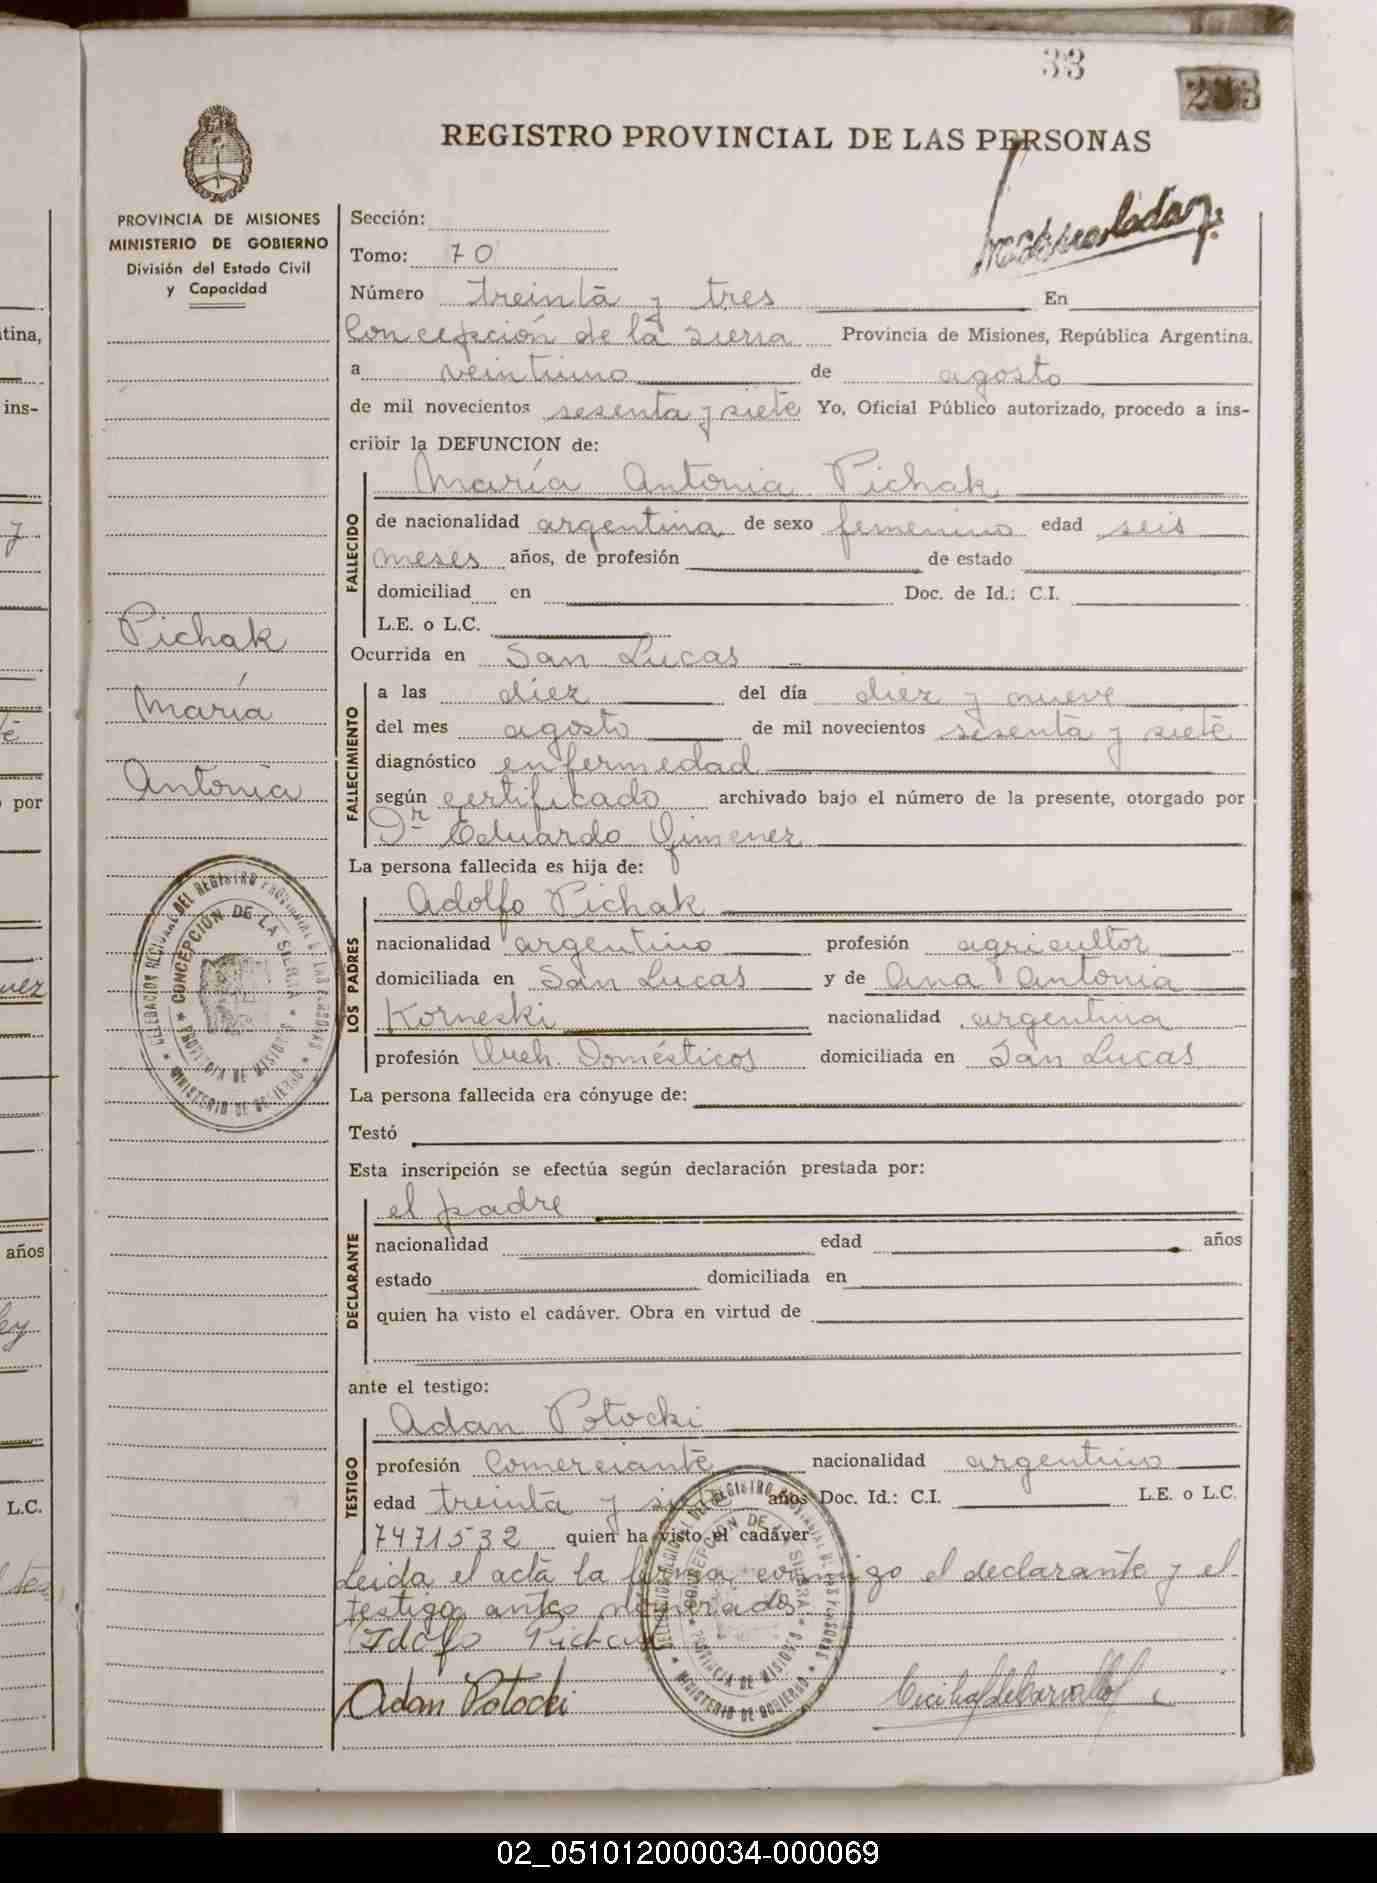 33
REGISTRO PROVINCIAL DE LAS PERSONAS
PROVINCIA DE MISIONES
MINISTERIO DE GOBIERNO
División del Estado Civil
y Capacidad
Sección:
Tomo: 70
Número treinta y tres En
Concepción de la Sierra Provincia de Misiones, República Argentina.
a veintiuno de agosto
de mil novecientos sesenta y siete Yo, Oficial Público autorizado, procedo a ins-
cribir la DEFUNCION de:
FALLECIDO
María Antonia Pichak
de nacionalidad argentina de sexo femenino edad seis
meses años, de profesión de estado
domiciliad en Doc. de Id.: C.I.
L.E. o L.C.
Pichak
María
Antonia
Ocurrida en San Lucas
FALLECIMIENTO
a las diez del día diez y nueve
del mes agosto de mil novecientos sesenta y siete
diagnóstico enfermedad
según certificado archivado bajo el número de la presente, otorgado por
Dr Eduardo Gimenez
La persona fallecida es hija de:
LOS PADRES
Adolfo Pichak
nacionalidad argentino profesión agricultor
domiciliada en San Lucas y de Ana Antonia
Korneski nacionalidad argentina
profesión Queh. Domésticos domiciliada en San Lucas
DELEGACION REGIONAL DEL REGISTRO PROVINCIAL DE LAS PERSONAS
CONCEPCIÓN DE LA SIERRA
PROVINCIA DE MISIONES
MINISTERIO DE GOBIERNO
La persona fallecida era cónyuge de:
Testó
Esta inscripción se efectúa según declaración prestada por:
DECLARANTE
el padre
nacionalidad edad años
estado domiciliada en
quien ha visto el cadáver. Obra en virtud de
ante el testigo:
TESTIGO
Adan Potocki
profesión Comerciante nacionalidad argentino
edad treinta y siete años Doc. Id.: C.I. L.E. o L.C.
7471532 quien ha visto el cadáver
Leida el acta la firma conmigo el declarante y el
testigo antes nombrados
Adolfo Pichak
Adan Potocki
DELEGACION REGIONAL DEL REGISTRO PROVINCIAL DE LAS PERSONAS
CONCEPCIÓN DE LA SIERRA
PROVINCIA DE MISIONES
MINISTERIO DE GOBIERNO
tina,
ins-
por
años
L.C.
02_051012000034-000069